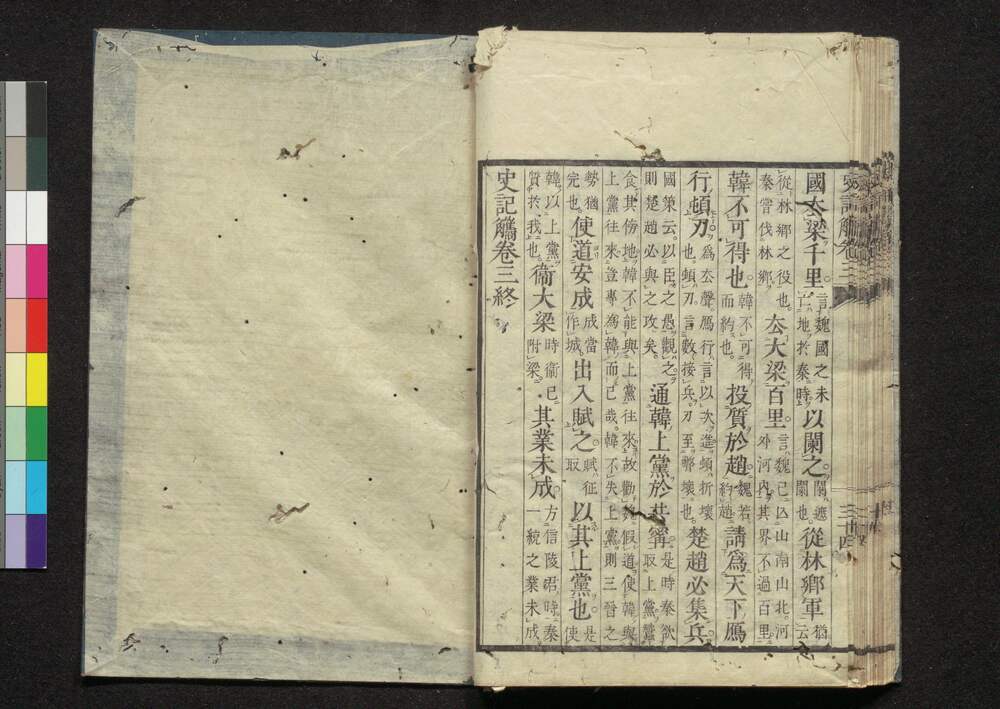 國去大梁千里。言魏國之未亡地於秦時。以闌之。闌遮闌也。從林鄉軍猶云
從林鄉之役也。秦嘗伐林鄉。去大梁百里。言魏已亡山南山北。河外河內其界不過百里。
韓不可得也。韓不可得而約也。投質於趙。魏若約趙請爲天下鴈
行頓刃。爲去聲鴈行言以次進頓折壞也頓刃言數接兵刃至弊壞也。楚趙必集兵。
國策云以臣之愚觀之則楚趙必與之攻矣。通韓上黨於共甯是時秦欲取上黨蠶
食其傍地韓不能與上黨往來故勸魏假道使韓與上黨往來豈專爲韓而已哉韓不失上黨則三晉之
勢猶完也。使道安成成當作城。出入賦之。賦征取以其上黨也。是使
韓以上黨質於我也。衞大梁時衞已附梁。其業未成。方信陵君時秦一統之業未成
史記觿卷三終
史記觿卷三
三十四